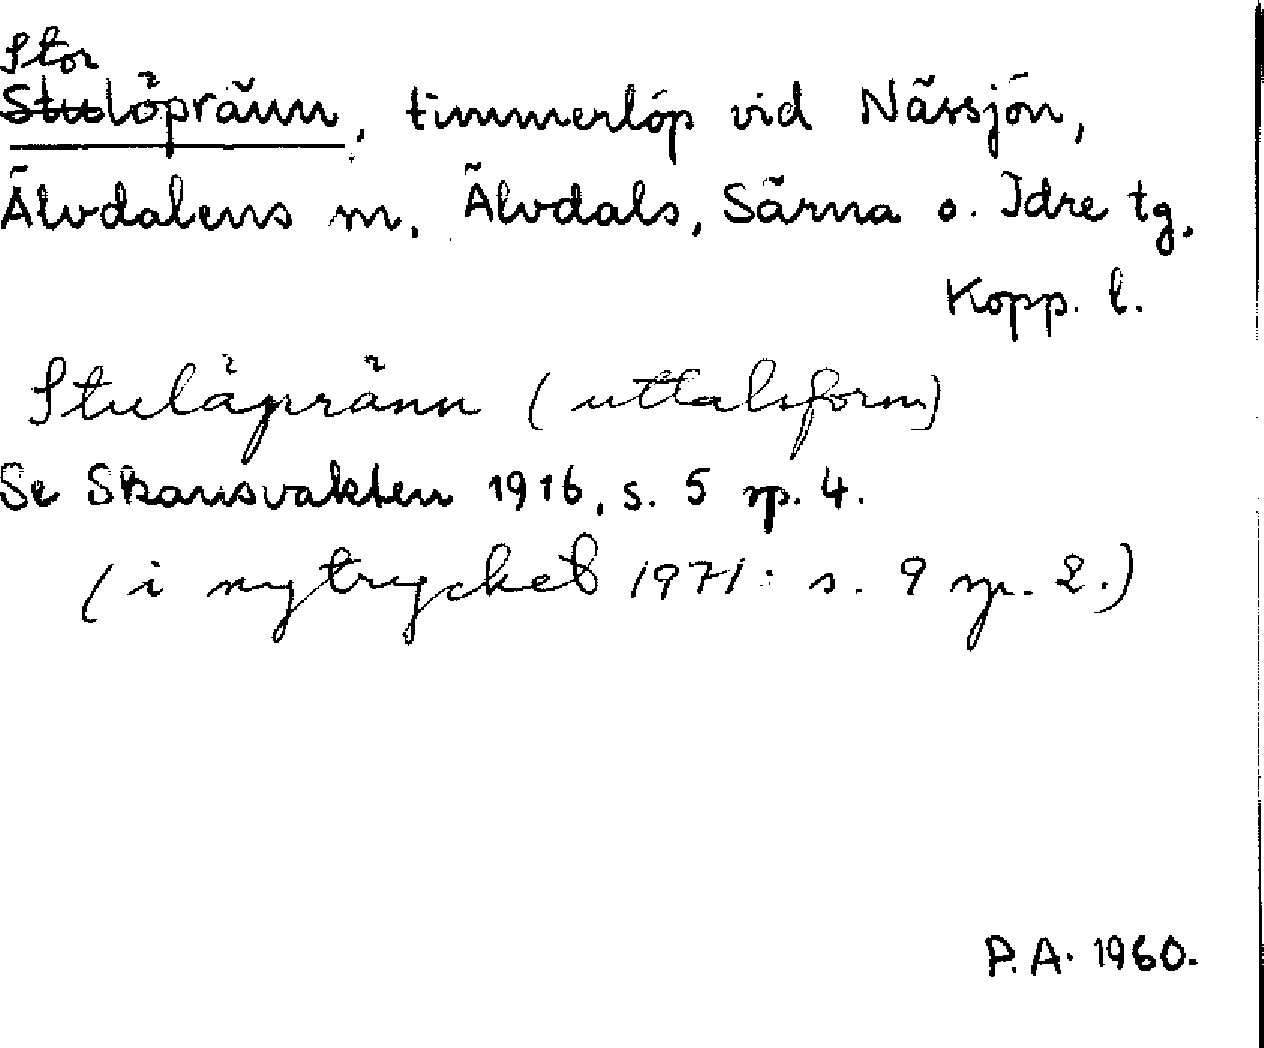 Stor
Stulöpränn, timmerlöp vid Nässjön,
Älvdalens m, Älvdals, Särna o. Idre tg.
Kopp. l.
Stuläpränn (uttalsform)
Se Skansvakten 1916, s. 5 sp. 4.
(i nytrycket 1971: s. 9 sp. 2.)
P.A. 1960.